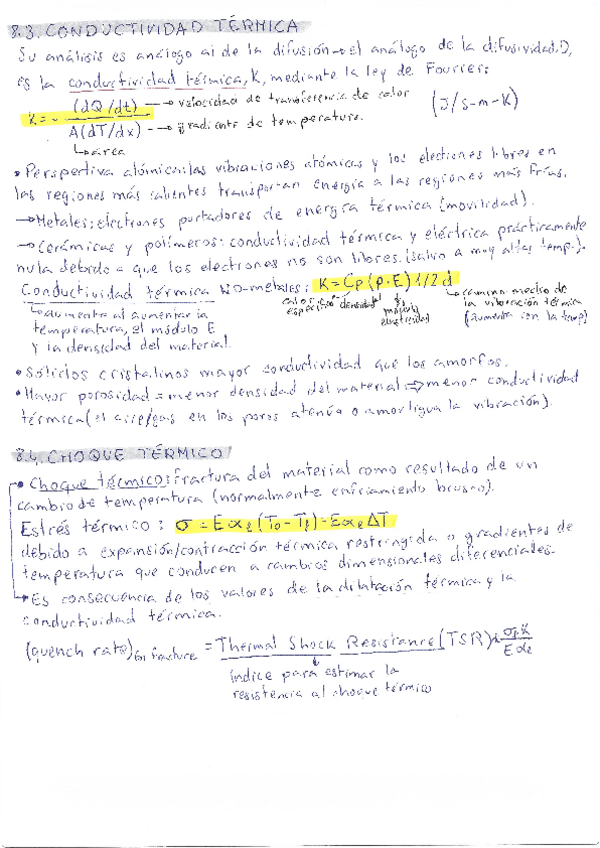 8.3. CONDUCTIVIDAD TÉRMICA
Su análisis es análogo al de la difusión→el análogo de la difusividad, D,
es la conductividad térmica, K, mediante la ley de Fourier:
K = - (dQ/dt) → velocidad de transferencia de calor (J/s-m-K)
A(dT/dx) → gradiente de temperatura.
↳área
• Perspectiva atómica: las vibraciones atómicas y los electrones libres en
las regiones más calientes transportan energía a las regiones más frías.
→Metales: electrones portadores de energía térmica (movilidad).
→Cerámicas y polímeros: conductividad térmica y eléctrica prácticamente
nula debido a que los electrones no son libres. (salvo a muy altas temp.).
Conductividad térmica NO-metales: K = Cp (ρ·E) 1/2 d
calor específico densidad módulo elasticidad
↳camino medio de la vibración térmica (aumenta con la temp)
↳aumenta al aumentar la
temperatura, el módulo E
y la densidad del material.
• Sólidos cristalinos mayor conductividad que los amorfos.
• Mayor porosidad = menor densidad del material ⇒ menor conductividad
térmica (el aire/gas en los poros atenúa o amortigua la vibración).
8.4. CHOQUE TÉRMICO
• Choque térmico: fractura del material como resultado de un
cambio de temperatura (normalmente enfriamiento brusco).
Estrés térmico: σ = E αℓ (T0 - Tf) = E αℓ ΔT
debido a expansión/contracción térmica restringida o gradientes de
temperatura que conducen a cambios dimensionales diferenciales.
↳• Es consecuencia de los valores de la dilatación térmica y la
conductividad térmica.
(quench rate) for fracture = Thermal Shock Resistance (TSR) ∝ σf K / E αℓ
índice para estimar la
resistencia al choque térmico